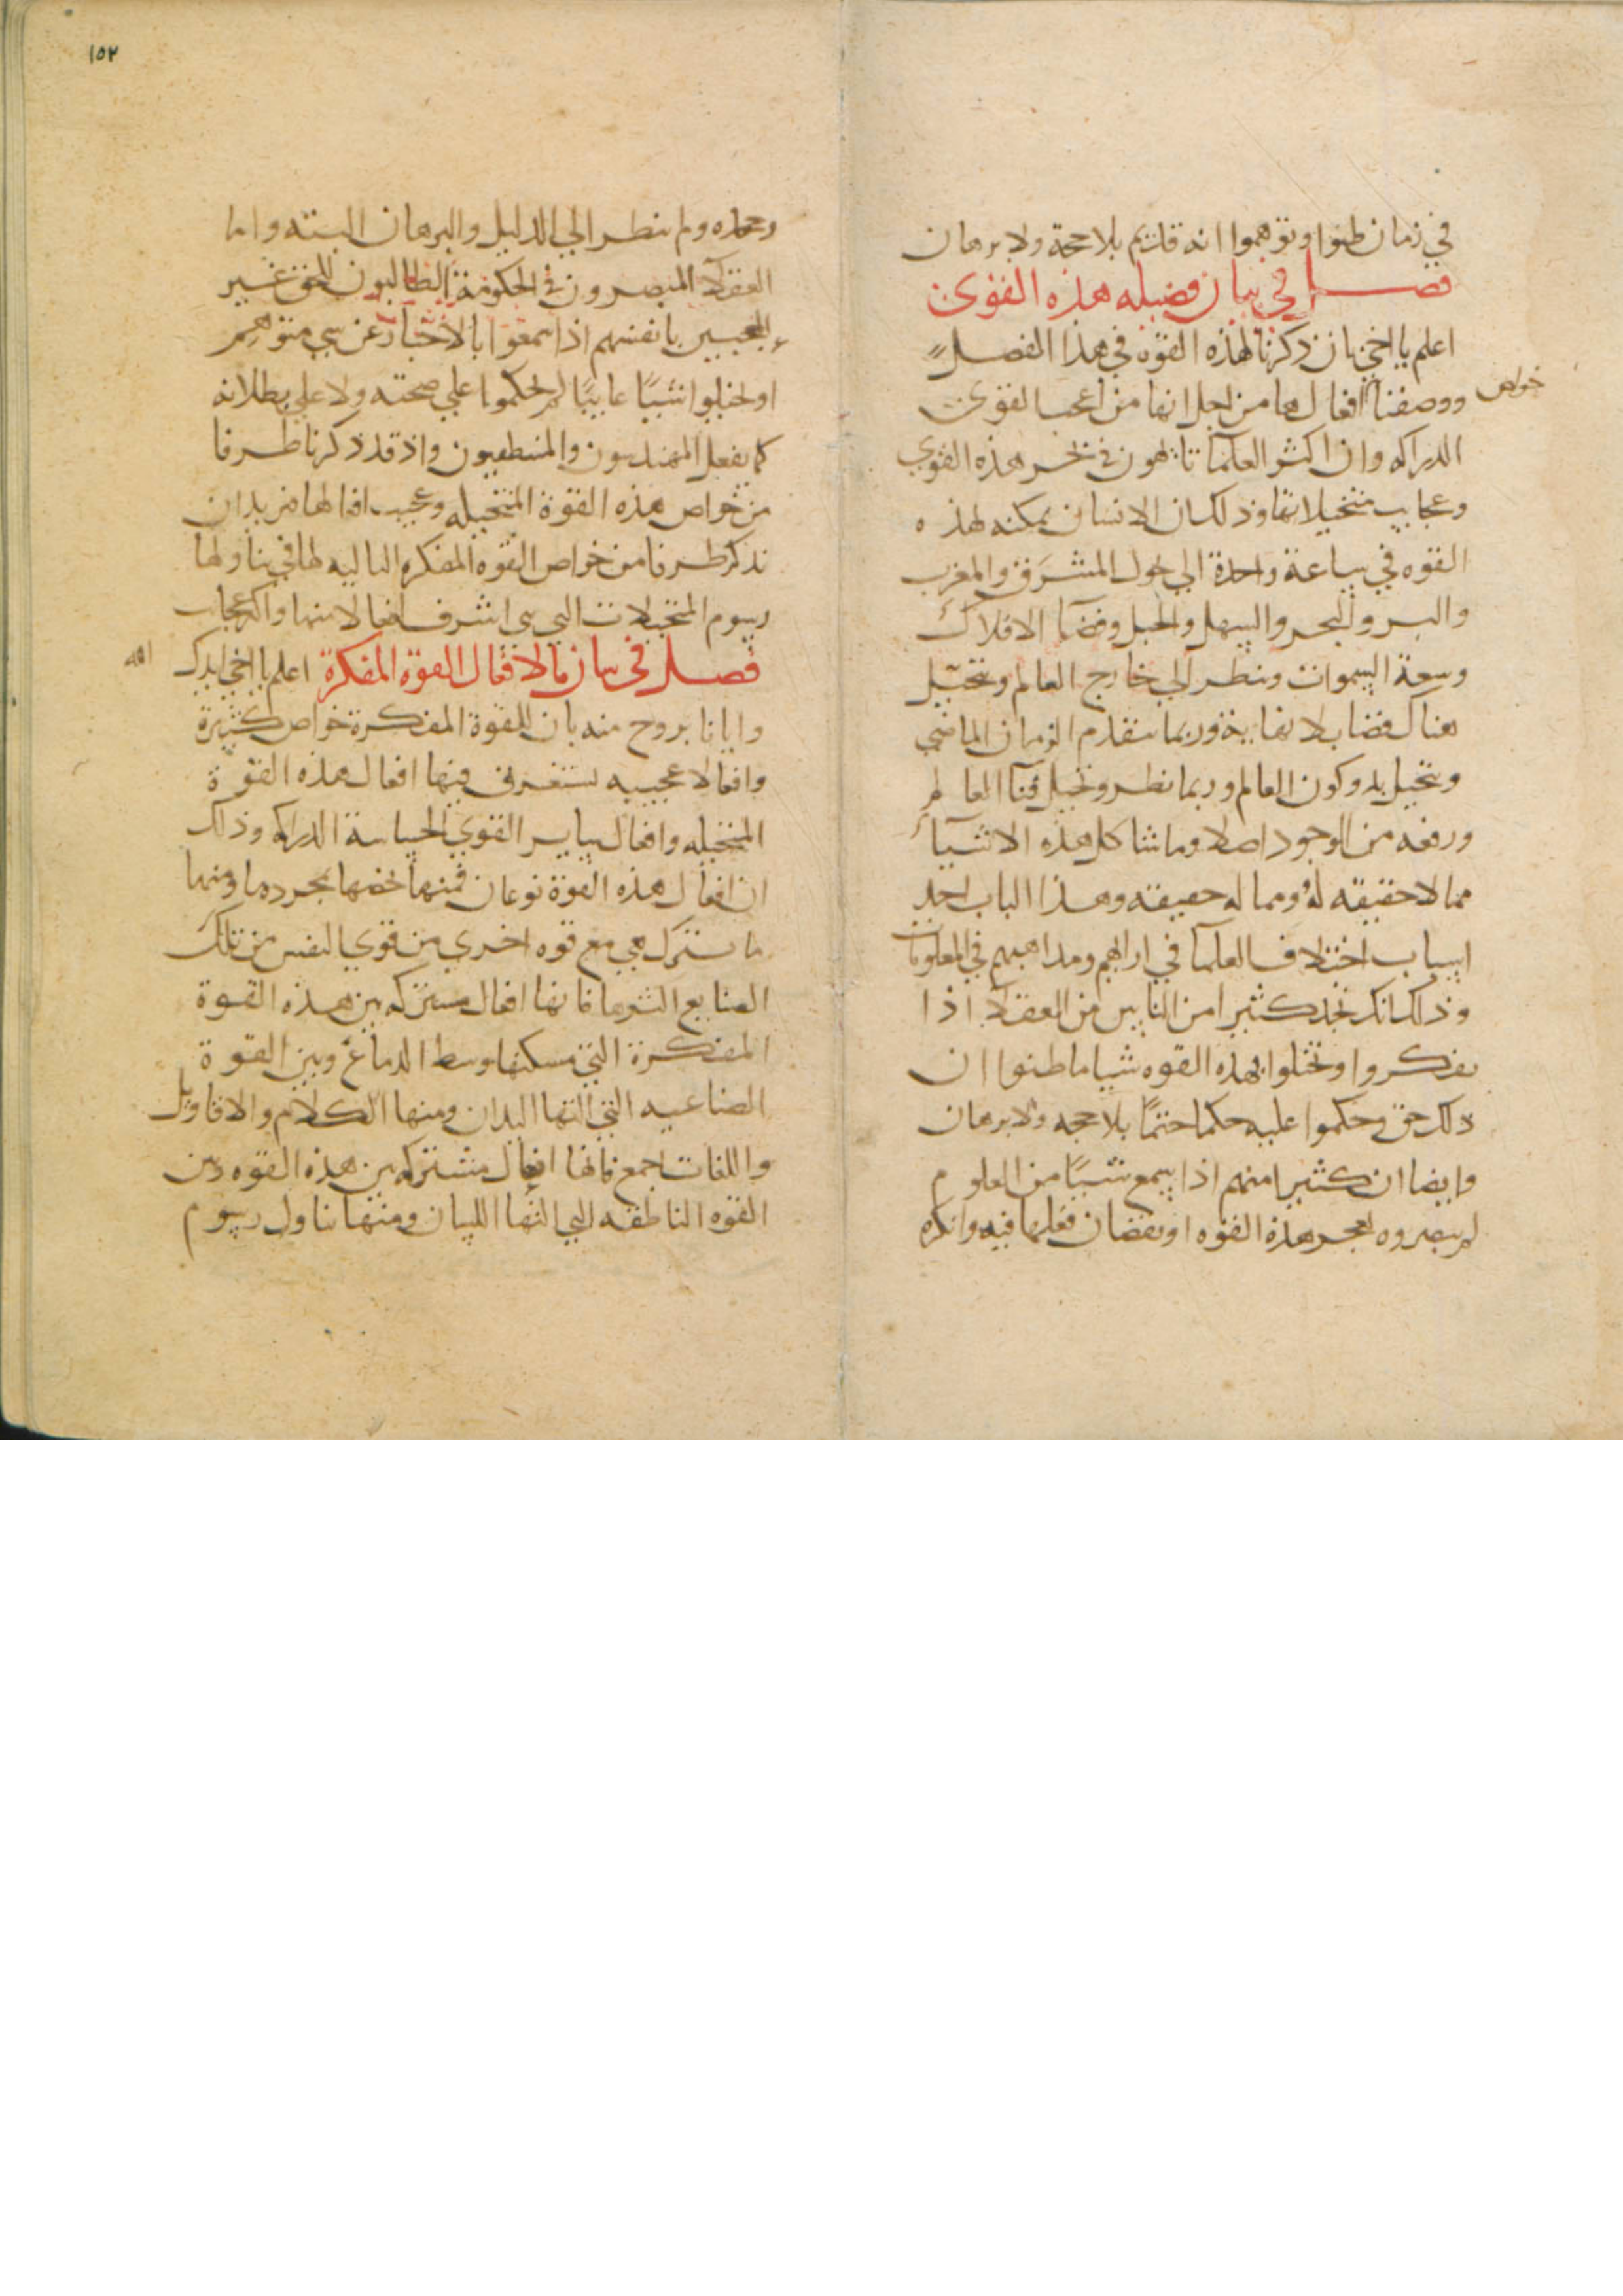 في زمان ظنوا وتوهموا انه قديم بلا حجة ولا برهان
فصل في بيان فضيله هذه القوى
اعلم يا اخي بان ذكرنا لهذه القوه في هذا الفصل
ووصفنا خواص افعالها من اجل انها من اعجب القوى
الدراكه وان اكثر العلما تايهون في بحر هذه القوي
وعجايب متخيلاتها وذلك ان الانسان يمكنه لهذه
القوه في ساعة واحدة الي يجول المشرق والمغرب
والبر والبحر والسهل والجبل وفضا الافلاك
وسعة السموات وينظر الي خارج العالم ويتخيل
هناك فضا بلا نهاية وربما يتقدم الزمان الماضي
ويتخيل بدو كون العالم وربما نظر وتخيل فنا العالم
ورفعه من الوجود اصلا وما شاكل هذه الاشيا
مما لا حقيقه له ومما له حقيقه وهذا الباب احد
اسباب اختلاف العلما في ارايهم ومذاهبهم في المعلومات
وذلك انك تجد كثيرا من الناس من العقلا اذا
تفكروا وتخيلوا بهذه القوه شيا ما ظنوا ان
ذلك حق وحكموا عليه حكما حتما بلا حجه ولا برهان
وايضا ان كثيرا منهم اذا سمع شيا من العلوم
لم يتصوره لعجز هذه القوه او نقصان فعلها فيه وانكره
١٥٢
وجحده ولم ينظر الي الدليل والبرهان البته واما
العقلا المبصرون في الحكومة الطالبون للحق غير
المعجبين بانفسهم اذا سمعوا بالاخبار عن شي متوهم
او تخيلوا شيا غايبا لم يحكموا علي صحته ولا علي بطلانه
كما يفعل المهندسون والمنطقيون واذ قد ذكرنا طرفا
من خواص هذه القوة المتخيله وعجيب افعالها فنريد ان
نذكر طرفا من خواص القوه المفكره التاليه لها في تناولها
رسوم المتخيلات التي هي اشرف افعالا منها واكثر عجايب
فصل في بيان ما لافعال القوه المفكرة اعلم يا اخي ايدك الله
وايانا بروح منه بان للقوة المفكرة خواص كثيرة
وافعالا عجيبه تستغرق فيها افعال هذه القوة
المتخيله وافعال ساير القوي الحساسة الدراكه وذلك
ان افعال هذه القوة نوعان فمنها تخصها بمجردها ومنها
ما تشترك هي مع قوه اخري من قوي النفس من تلك
الصنايع اكثرها فانها افعال مشتركه بين هذه القوة
المفكرة التي مسكنها وسط الدماغ وبين القوة
الصناعيه التي التها اليدان ومنها الكلام والاقاويل
واللغات اجمع فانها افعال مشتركه بين هذه القوه وبين
القوه الناطقه التي التها اللسان ومنها تناول رسوم